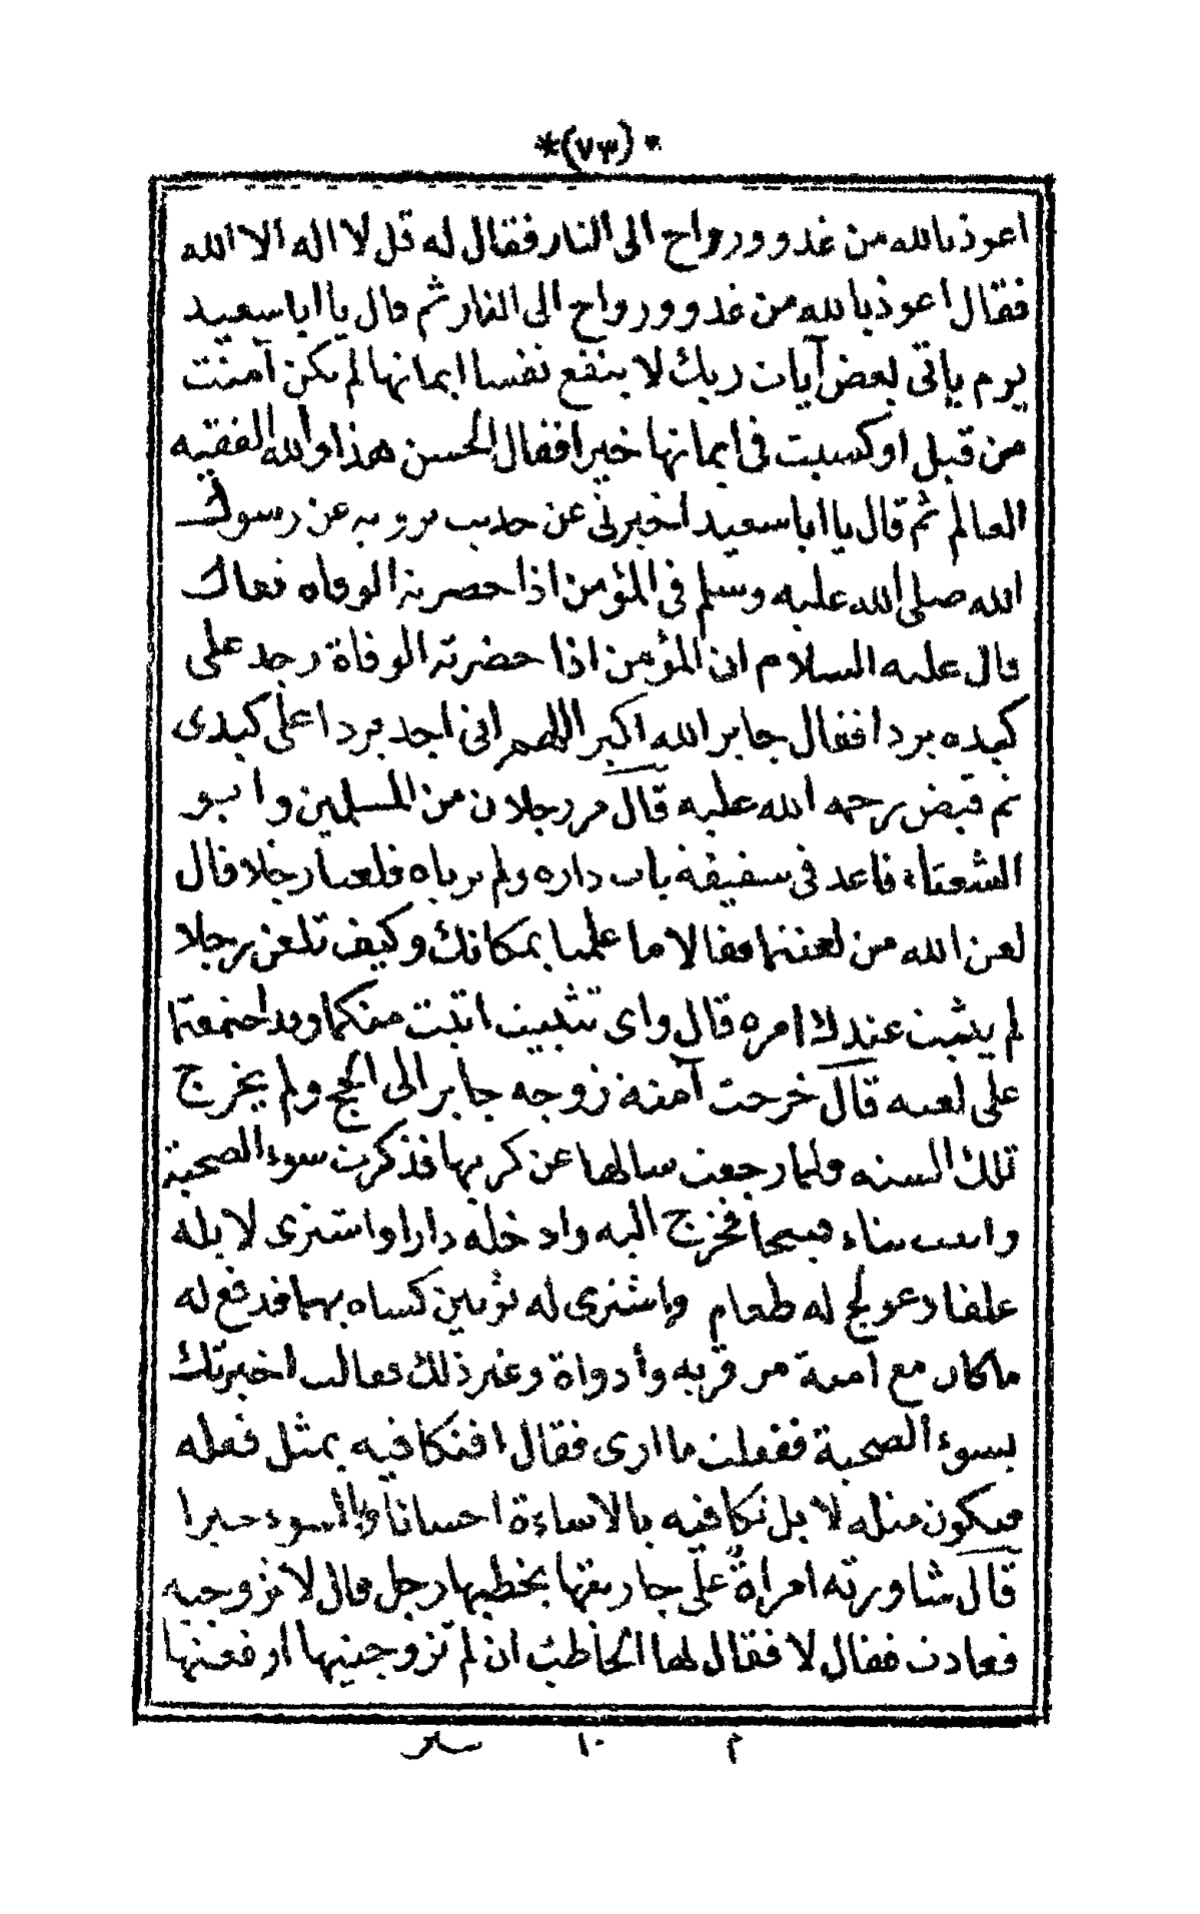 *(٧٣)*
اعوذ بالله من غدو ورواح الى النار فقال له قل لا اله الا الله
فقال اعوذ بالله من غدو ورواح الى النار ثم قال يا ابا سعيد
يوم ياتى بعض آيات ربك لا ينفع نفسا ايمانها لم تكن آمنت
من قبل او كسبت فى ايمانها خيرا فقال الحسن هذا والله الفقيه
العالم ثم قال يا ابا سعيد اخبرنى عن حديث ترويه عن رسول
الله صلى الله عليه وسلم فى المؤمن اذا حضرته الوفاة فقال
قال عليه السلام ان المؤمن اذا حضرته الوفاة وجد على
كبده بردا فقال جابر الله اكبر اللهم انى اجد بردا على كبدى
ثم قبض رحمه الله عليه قال مر رجلان من المسلمين وابو
الشعثاء قاعد فى سقيفة باب داره ولم يرياه فلعنا رجلا قال
لعن الله من لعنتما فقالا ما علمنا بمكانك وكيف تلعن رجلا
لم يثبت عندك امره قال واى تثبيت اثبت منكما وقد اجتمعتما
على لعنه قال خرجت آمنة زوجه جابر الى الحج ولم يخرج
تلك السنه ولما رجعت سالها عن كريها فذكرت سوء الصحبة
واثنت ثناء قبيحا فخرج اليه وادخله دارا واشترى لابله
علفا وعولج له طعام واشترى له ثوبين كساه بهما فدفع له
ما كان مع آمنة من قربه وأدواة وغير ذلك فقالت اخبرتك
بسوء الصحبة ففعلت ما ارى فقال افنكافيه بمثل فعله
فنكون مثله لا بل نكافيه بالاساءة احسانا وبالسوء خيرا
قال شاورته امراة على جاريتها يخطبها رجل قال لا تزوجيه
فعادت فقال لا فقال لها الخاطب ان لم تزوجنيها ارفعنها
م ١٠ سير